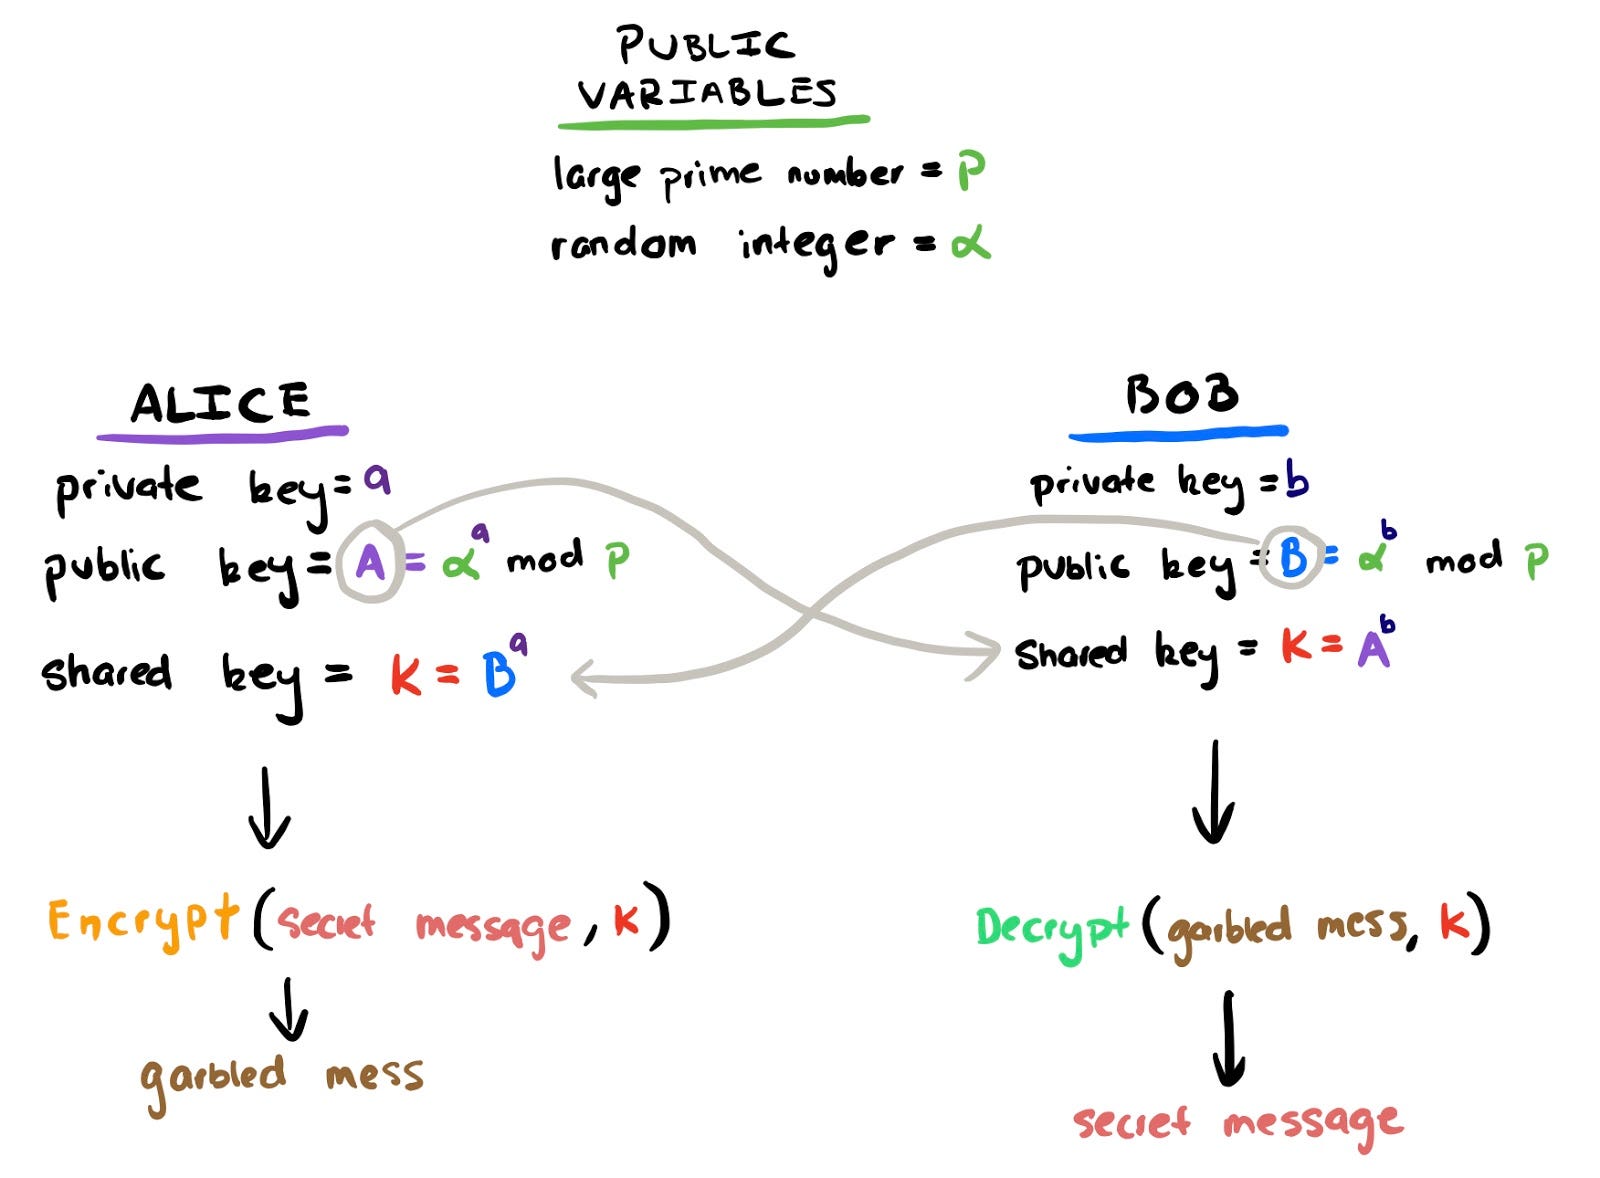 PUBLIC
VARIABLES
large prime number = p
random integer = α
ALICE
private key = a
public key = A = α^a mod p
shared key = K = B^a
Encrypt (secret message, K)
garbled mess
BOB
private key = b
public key = B = α^b mod p
shared key = K = A^b
Decrypt (garbled mess, K)
secret message